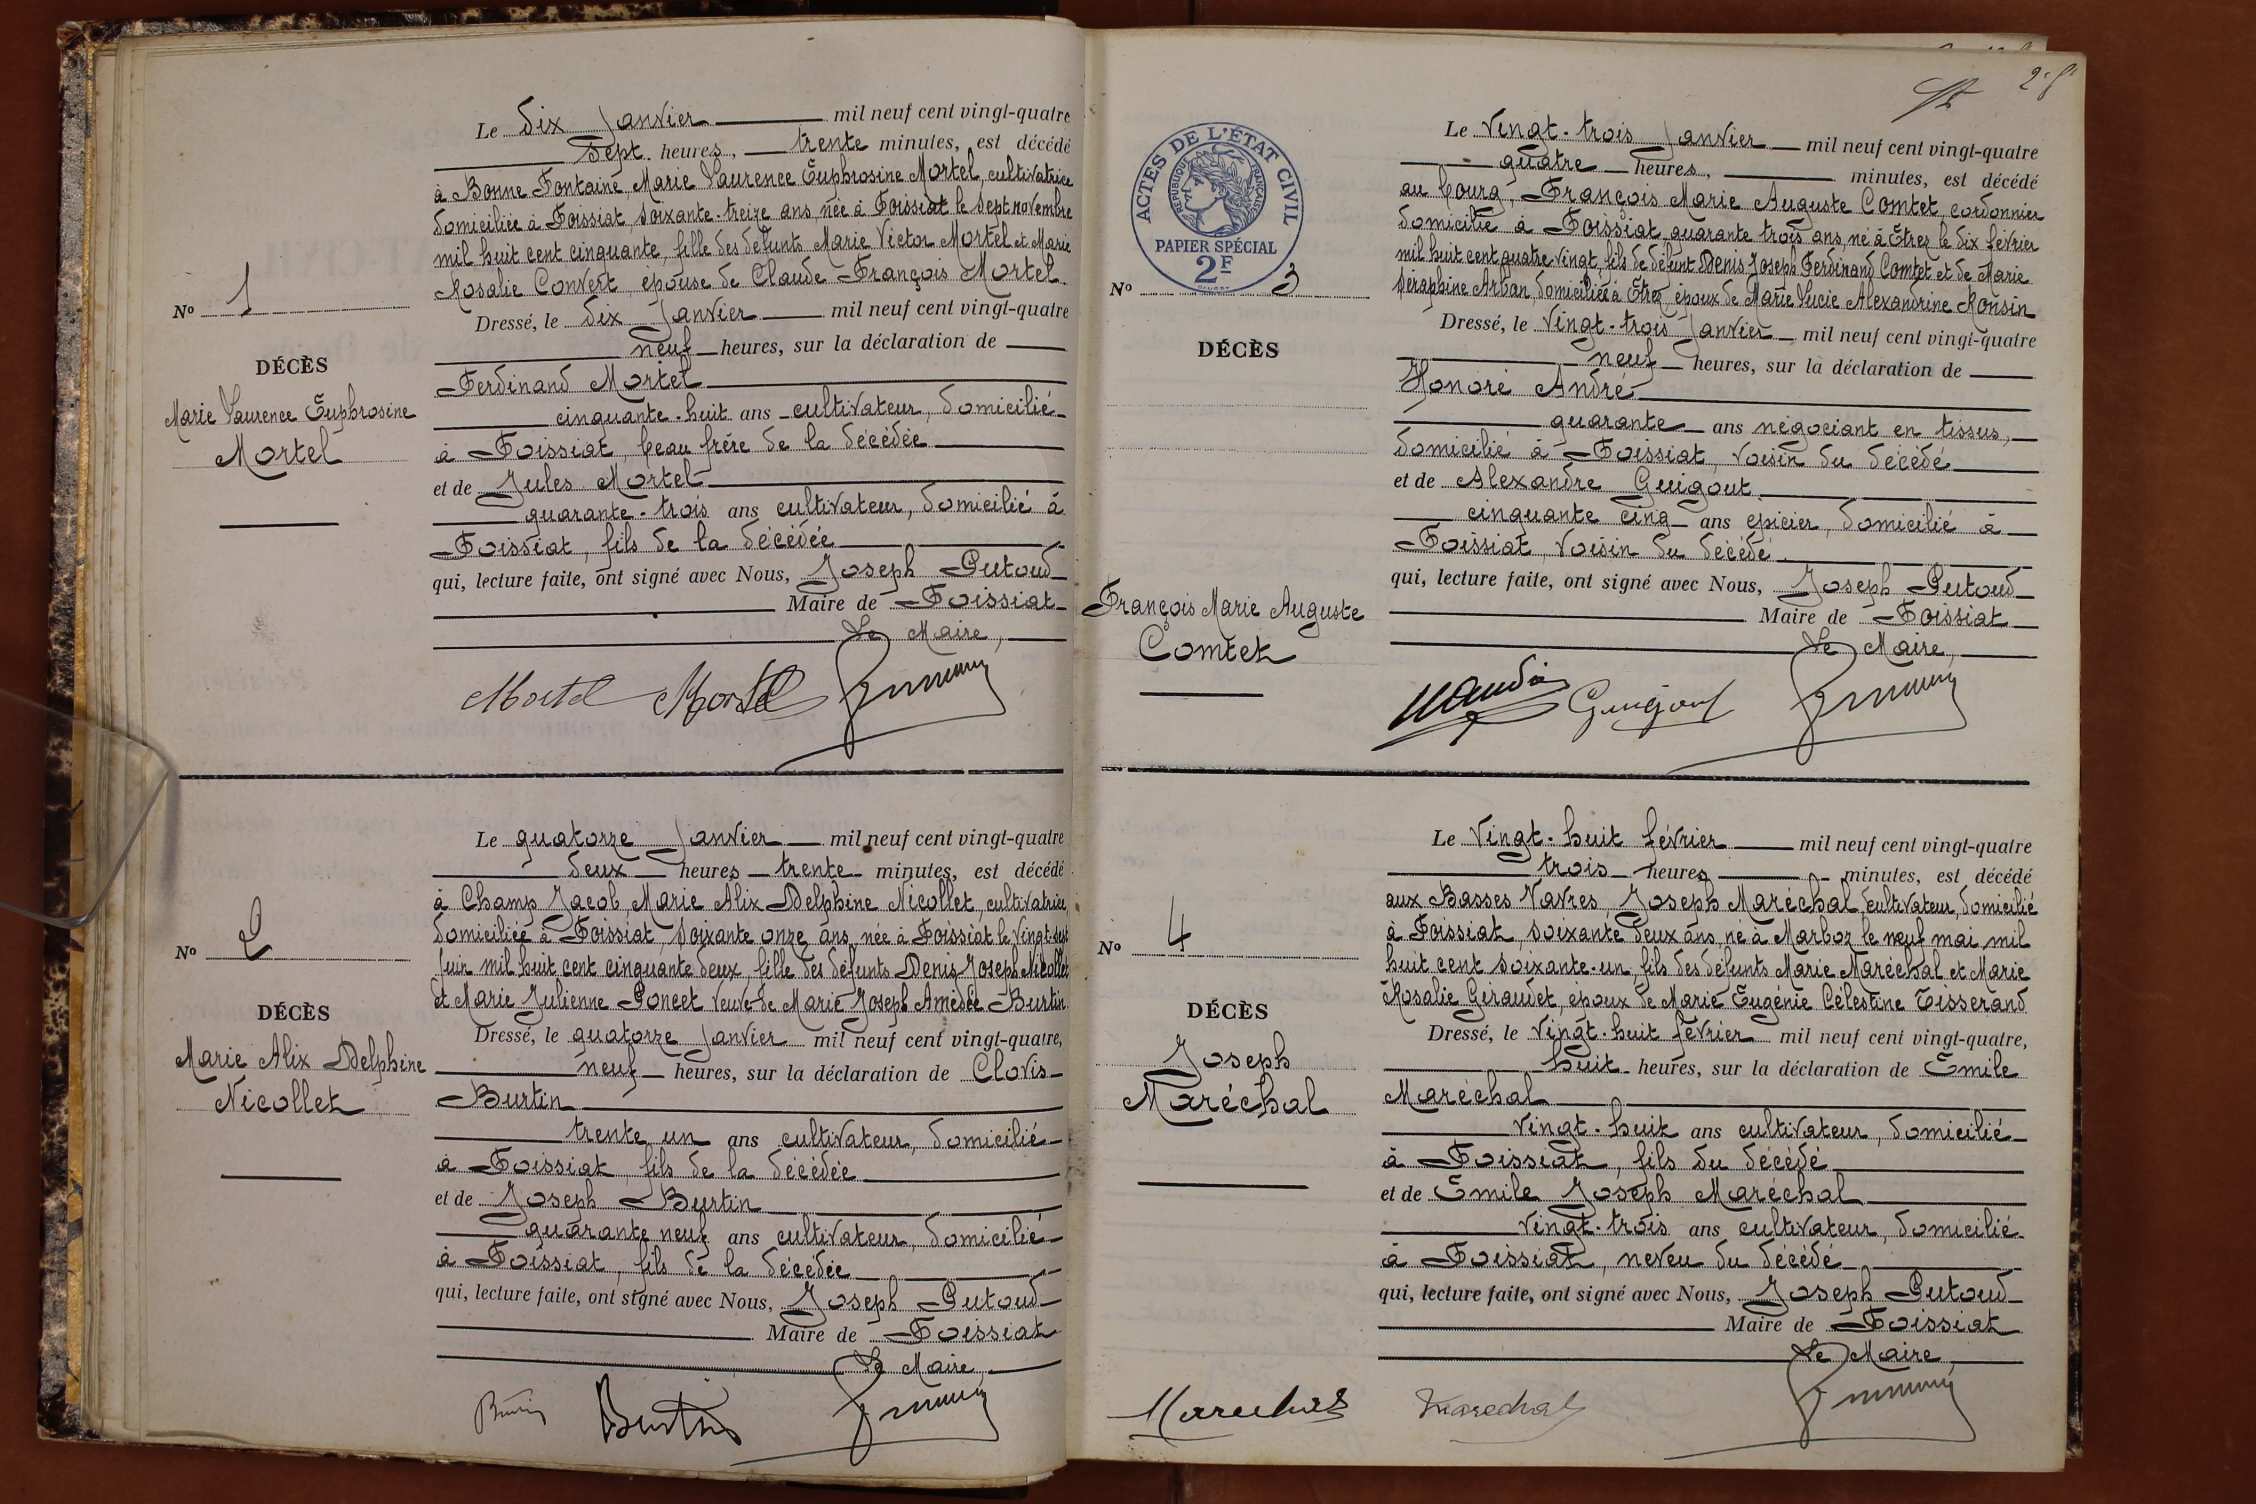 Le dix Janvier mil neuf cent vingt-quatre
sept heures, trente minutes, est décédé
à Bonne Fontaine, Marie Laurence Euphrosine Mortel, cultivatrice
domiciliée à Foissiat, soixante-treize ans née à Foissiat le sept novembre
mil huit cent cinquante, fille des défunts Marie Victor Mortel et Marie
Rosalie Convert, épouse de Claude François Mortel.
No 1
Dressé, le dix Janvier mil neuf cent vingt-quatre
neuf heures, sur la déclaration de
DÉCÈS
Ferdinand Mortel
Marie Laurence Euphrosine
Mortel
cinquante-huit ans cultivateur, domicilié
à Foissiat, beau frère de la décédée
et de Jules Mortel
quarante-trois ans cultivateur, domicilié à
Foissiat, fils de la décédée
qui, lecture faite, ont signé avec Nous, Joseph Putoud
Maire de Foissiat
Le Maire,
Mortel Mortel
Le quatorze Janvier mil neuf cent vingt-quatre
deux heures trente minutes, est décédé
à Champ Jacob, Marie Alix Delphine Nicollet, cultivatrice,
domiciliée à Foissiat, soixante onze ans, née à Foissiat le vingt-sept
Juin mil huit cent cinquante deux, fille des défunts Denis Joseph Nicollet
et Marie Julienne Poncet veuve de Marie Joseph Amédée Burtin
No 2
Dressé, le quatorze Janvier mil neuf cent vingt-quatre,
neuf heures, sur la déclaration de Clovis
DÉCÈS
Marie Alix Delphine
Nicollet
Burtin
trente un ans cultivateur, domicilié
à Foissiat, fils de la décédée
et de Joseph Burtin
quarante neuf ans cultivateur, domicilié
à Foissiat, fils de la décédée
qui, lecture faite, ont signé avec Nous, Joseph Putoud
Maire de Foissiat
Le Maire,
Burtin Burtin
ACTES DE L'ÉTAT CIVIL
RÉPUBLIQUE FRANÇAISE
PAPIER SPÉCIAL
2F
Le vingt-trois Janvier mil neuf cent vingt-quatre
quatre heures, minutes, est décédé
au bourg, François Marie Auguste Comtet, cordonnier
domicilié à Foissiat, quarante trois ans, né à Étrez le dix février
mil huit cent quatre vingt, fils de défunt Denis Joseph Ferdinand Comtet et de Marie
Séraphine Arban, domiciliée à Étrez, époux de Marie Lucie Alexandrine Rousin
No 3
Dressé, le vingt-trois Janvier mil neuf cent vingt-quatre
neuf heures, sur la déclaration de
DÉCÈS
Honoré André
quarante ans négociant en tissus,
domicilié à Foissiat, voisin du décédé
et de Alexandre Guigout
cinquante cinq ans épicier, domicilié à
Foissiat, voisin du décédé
qui, lecture faite, ont signé avec Nous, Joseph Putoud
François Marie Auguste
Comtet
Maire de Foissiat
Le Maire,
Guigout
Le vingt-huit février mil neuf cent vingt-quatre
trois heures minutes, est décédé
aux Basses Vavres, Joseph Maréchal, cultivateur, domicilié
à Foissiat, soixante deux ans, né à Marboz le neuf mai mil
huit cent soixante-un, fils des défunts Marie Maréchal et Marie
Rosalie Giraudet, époux de Marie Eugénie Célestine Tisserand
No 4
Dressé, le vingt-huit février mil neuf cent vingt-quatre,
huit heures, sur la déclaration de Emile
DÉCÈS
Joseph
Maréchal
Maréchal
vingt-huit ans cultivateur, domicilié
à Foissiat, fils du décédé
et de Emile Joseph Maréchal
vingt-trois ans cultivateur, domicilié
à Foissiat, neveu du décédé
qui, lecture faite, ont signé avec Nous, Joseph Putoud
Maire de Foissiat
Le Maire,
Marechal Marechal